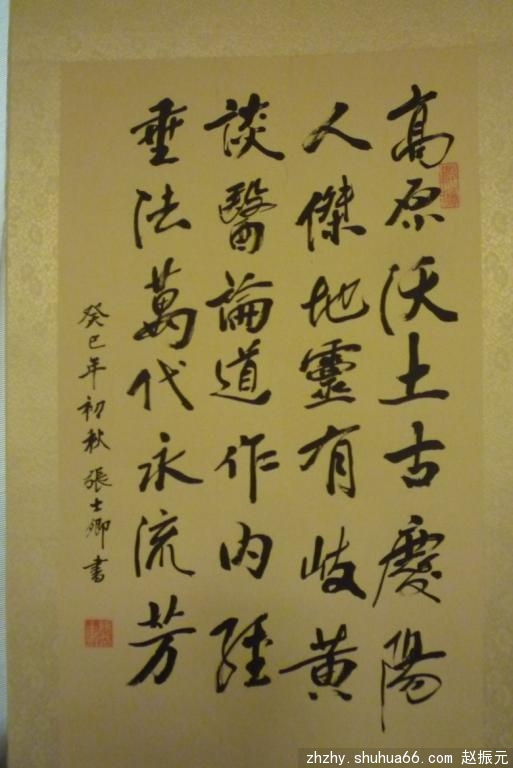 高原沃土古慶陽
人傑地靈有岐黄
談醫論道作内經
垂法萬代永流芳
癸巳年初秋張士卿書
zhzhy.shuhua66.com 赵振元